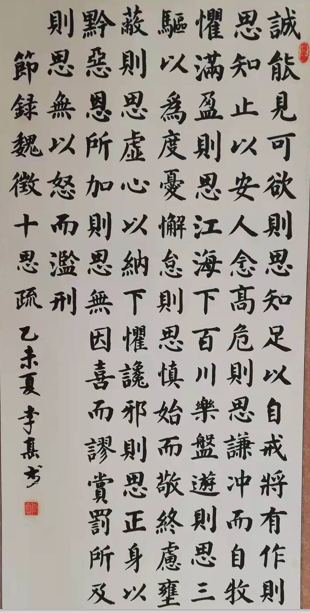 誠能見可欲則思知足以自戒將有作則
思知止以安人念髙危則思謙冲而自牧
懼滿盈則思江海下百川樂盤遊則思三
驅以爲度憂懈怠則思慎始而敬終慮壅
蔽則思虛心以納下懼讒邪則思正身以
黔惡恩所加則思無因喜而謬賞罰所及
則思無以怒而濫刑
節録魏徵十思疏乙未夏李